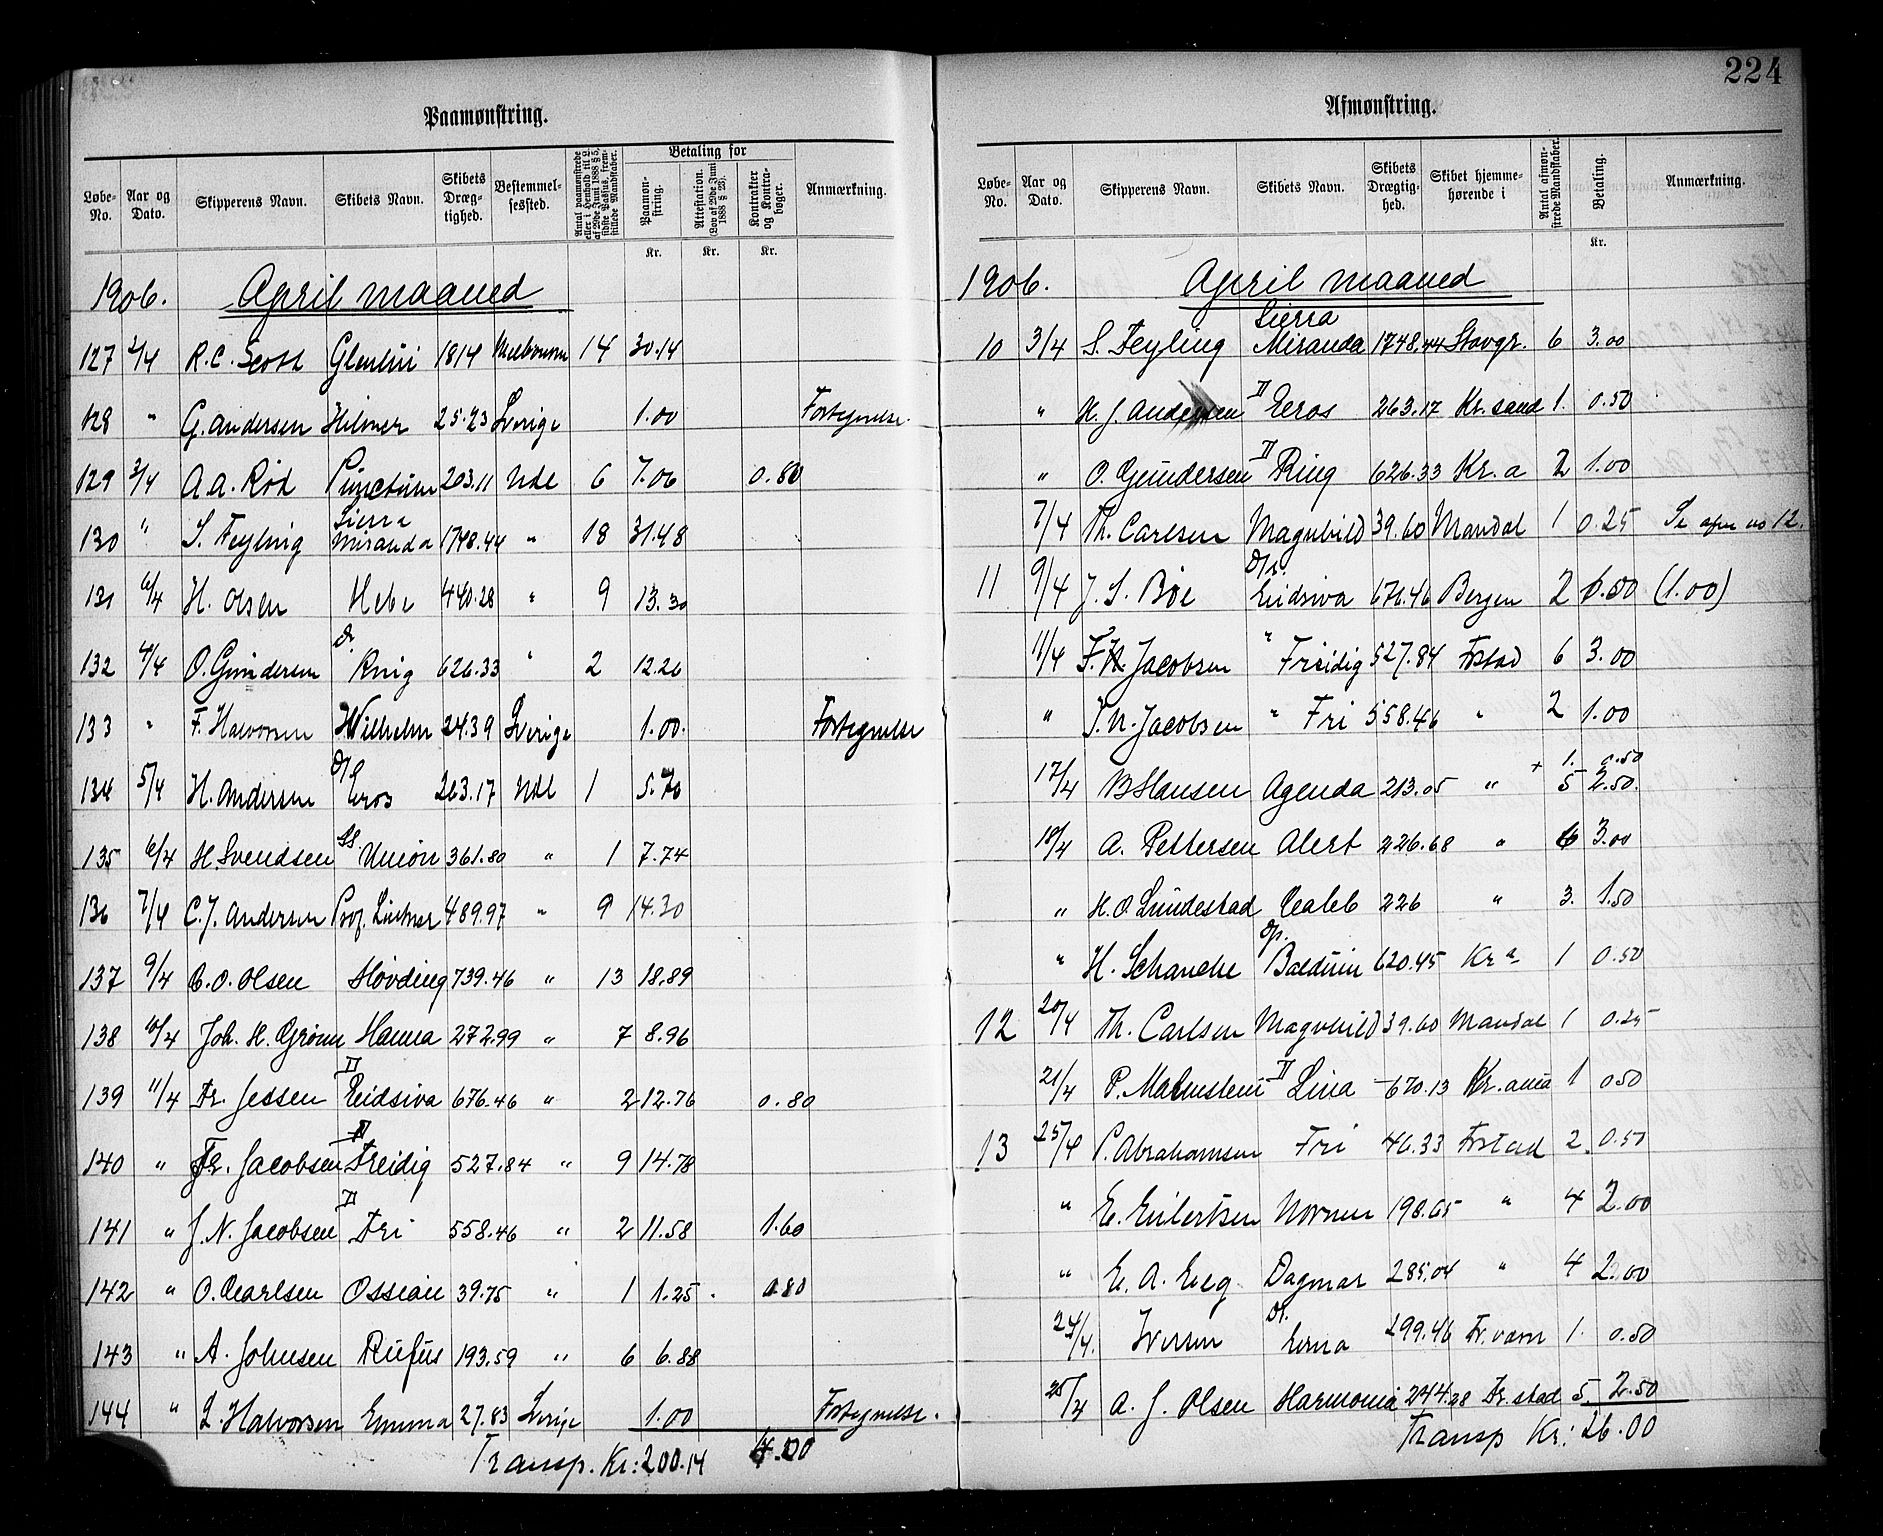 224
Paamønstring.
Løbe-No. Aar og Dato. Skipperens Navn. Skibets Navn. Skibets Dræg-tighed. Bestemmel-sessted. Antal paamønstrede eller i Henhold til L. af 29de Juni 1888 § 5, sidste Passus, frem-stillede Mandskaber. Betaling for Paamøn-string. Attestation. (Lov af 29de Juni 1888 § 23). Kontrakter og Kontra-bøger. Anmærkning.
Kr. Kr. Kr.
1906. April maaned
127 2/4 R.C. Scott 1814 Melbourne 14 30.14
128 " G. Andersen Hilmer 25.23 Sverige 1.00 Fortegnelse.
129 3/4 A.A. Rød Punctum 203.11 Udl 6 7.06 0.80
130 " S. Feyling Sierra Miranda 1748.44 " 18 31.48
131 4/4 H. Olsen Hebe 440.28 " 9 13.30
132 4/4 O. Gundersen D. Ring 626.33 " 2 12.26
133 " F. Halvorsen Wilhelm 24.39 Sverige 1.00. Fortegnelse
134 5/4 H. Andersen D/S Eros 263.17 Udl 1 5.70
135 6/4 H. Svendsen SS Union 361.80 " 1 7.74
136 7/4 C.J. Andersen Prof. Lintner 489.97 " 9 14.30
137 9/4 C.O. Olsen Høvding 739.46 " 13 18.89
138 10/4 Joh. H. Grønn Hanna 272.99 " 7 8.96
139 11/4 Fr. Jessen D Eidsiva 676.46 " 2 12.76 0.80
140 " Fr. Jacobsen D Freidig 527.84 " 9 14.78
141 " J.N. Jacobsen D Fri 558.46 " 2 11.58 1.60
142 " O. Carlsen Ossian 39.75 " 1 1.25. 0.80
143 " A. Johnsen Rufus 193.59 " 6 6.88
144 " L. Halvorsen Emma 27.83 Sverige 1.00 Fortegnelse.
Transp. Kr: 200.14 4.00
Afmønstring.
Løbe-No. Aar og Dato. Skipperens Navn. Skibets Navn. Skibets Drægtig-hed. Skibet hjemme-hørende i Antal afmøn-strede Mandskaber. Betaling. Anmærkning.
Kr.
1906. April maaned
10 3/4 S. Feyling Sierra Miranda 1748.44 Stavgr. 6 3.00
" H.J. Andersen D Eros 263.17 Kr.sand 1. 0.50
" O. Gundersen D Ring 626.33 Kr.a 2 1.00
7/4 Th. Carlsen Magnhild 39.60 Mandal 1 0.25 Se no 12.
11 9/4 J.S. Bøe D/S. Eidsiva 676.46 Bergen 2 (1.00)
11/4 Jacobsen " Freidig 527.84 Fstad 6 3.00
" J.N. Jacobsen " Fri 558.46 " 2 1.00
+ 1. 0.50
17/4 B Hansen Agenda 213.05 " 5 2.50.
18/4 A. Pettersen Alert 226.68 " 6 3.00
" H.O. Lundestad Caleb 226 " 3. 1.50
" H. Schanche Dp. Balduin 620.45 Kra 1 0.50
12 20/4 Th. Carlsen Magnhild 39.60 Mandal 1 0.25
21/4 P. Malmstein D Lina 670.13 Kr.ania 1 0.50
13 25/4 P. Abrahamsen Fri 46.33 Frstad 2. 0.50
" E. Eilertsen Nornen 198.65 " 4 2.00
" E.A. Eeg Dagmar 285.04 " 4 2.00
24/4. Iversen D. Erna 299.46 Fr.værn 1. 0.50
25/4 A.J. Olsen Harmonia 244.28 Fr.stad 5 2.50
Transp Kr: 26.00